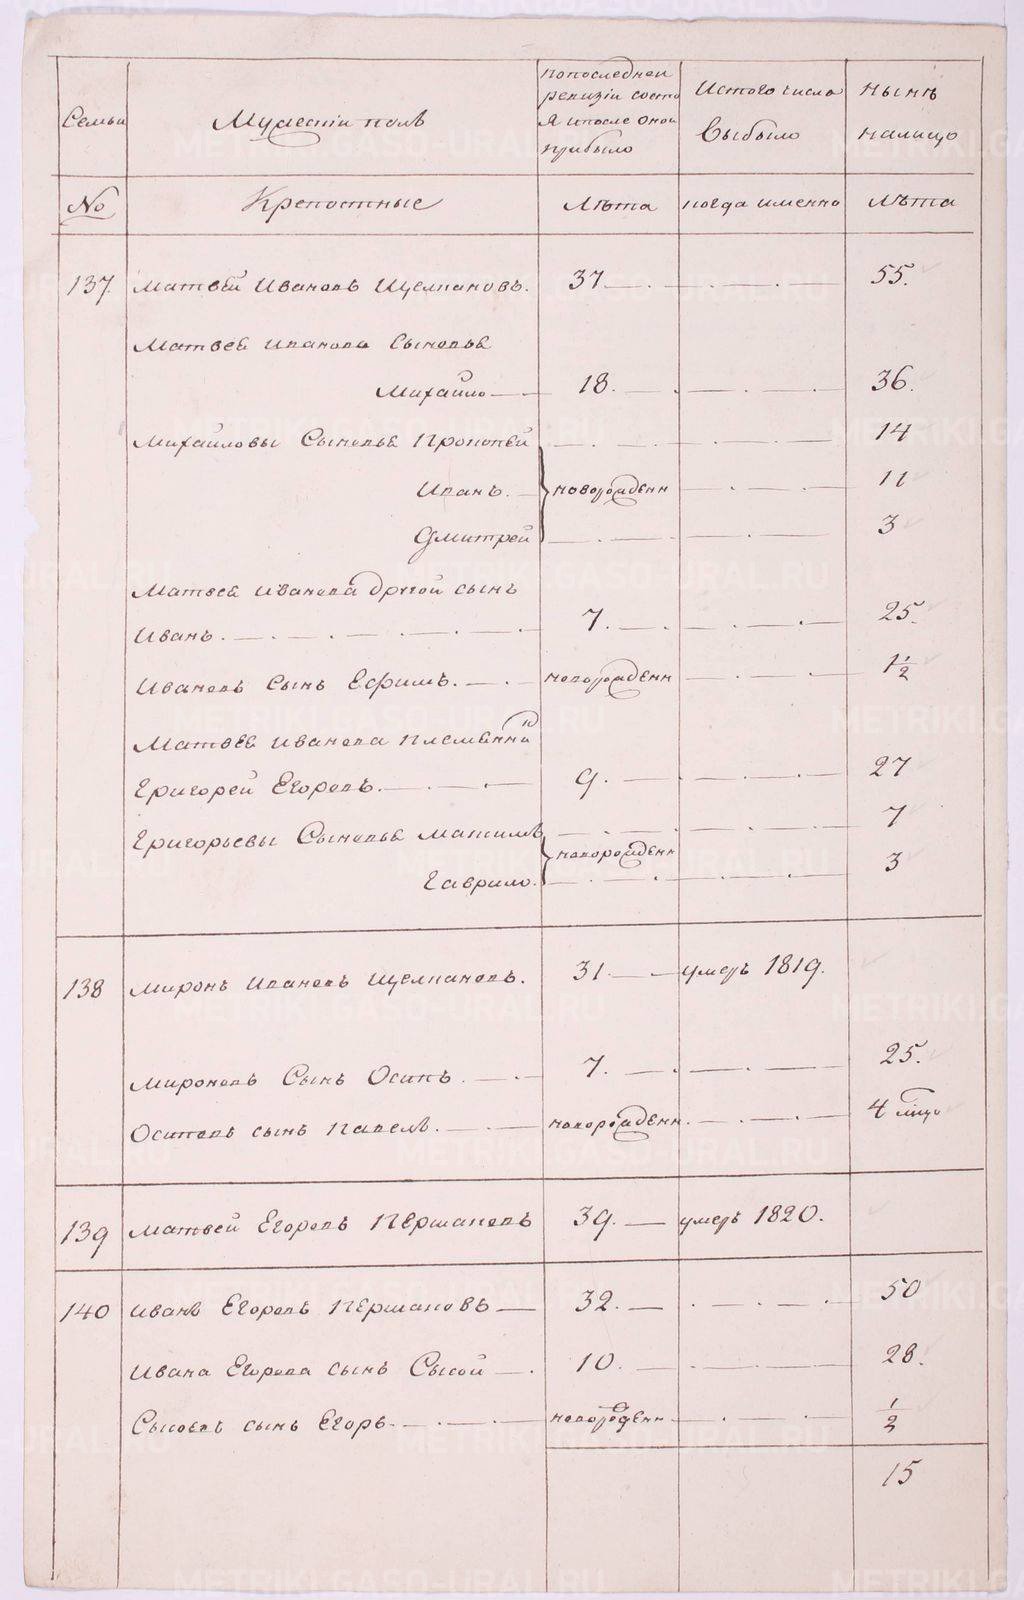 Семьи
Мужескiи полъ
попоследней
ревизiи состо
я ипосле оной
прибыло
Истого числа
выбыло
Нынѣ
налицо
№
Крепостные
Лѣта
когда имянно
Лѣта
137. Матвѣй Ивановъ Щелкановъ. 37 55.
Матвея Иванова сыновья
Михайло 18. 36.
Михайловы Сыновья Прокопей 14
Иванъ. новорожденн 11
Дмитрей 3
Матвея Иванова другой сынъ
Иванъ. 7. 25.
Ивановъ сынъ Ефимъ. новорожденн 1 1/2
Матвея Иванова племянни
Григорей Егоровъ. 9. 27
Григорьевы Сыновья Максимъ 7
новорожденн
Гаврило. 3
138 Миронъ Ивановъ Щелкановъ. 31. умеръ 1819.
Мироновъ Сынъ Осипъ. 7. 25.
Осиповъ сынъ Павелъ. новорожденн. 4 мцо
139 Матвей Егоровъ Першаковъ 39. умеръ 1820.
140 Иванъ Егоровъ Першаковъ 32. 50
Ивана Егорова сынъ Сысой 10. 28.
Сысоевъ сынъ Егоръ. новорожденн 1/2
15
METRIKI.GASO-URAL.RU